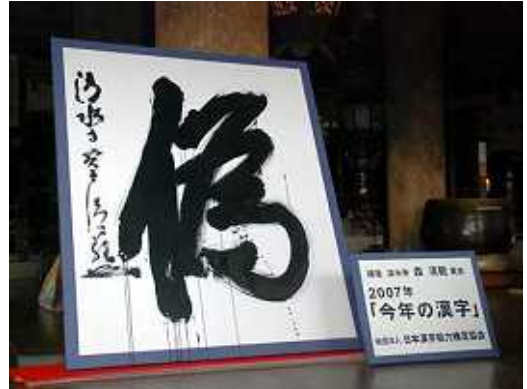 偽
清水寺 貫主 清範
揮毫 清水寺 森 清範 貫主
2007年
「今年の漢字」
財団法人 日本漢字能力検定協会